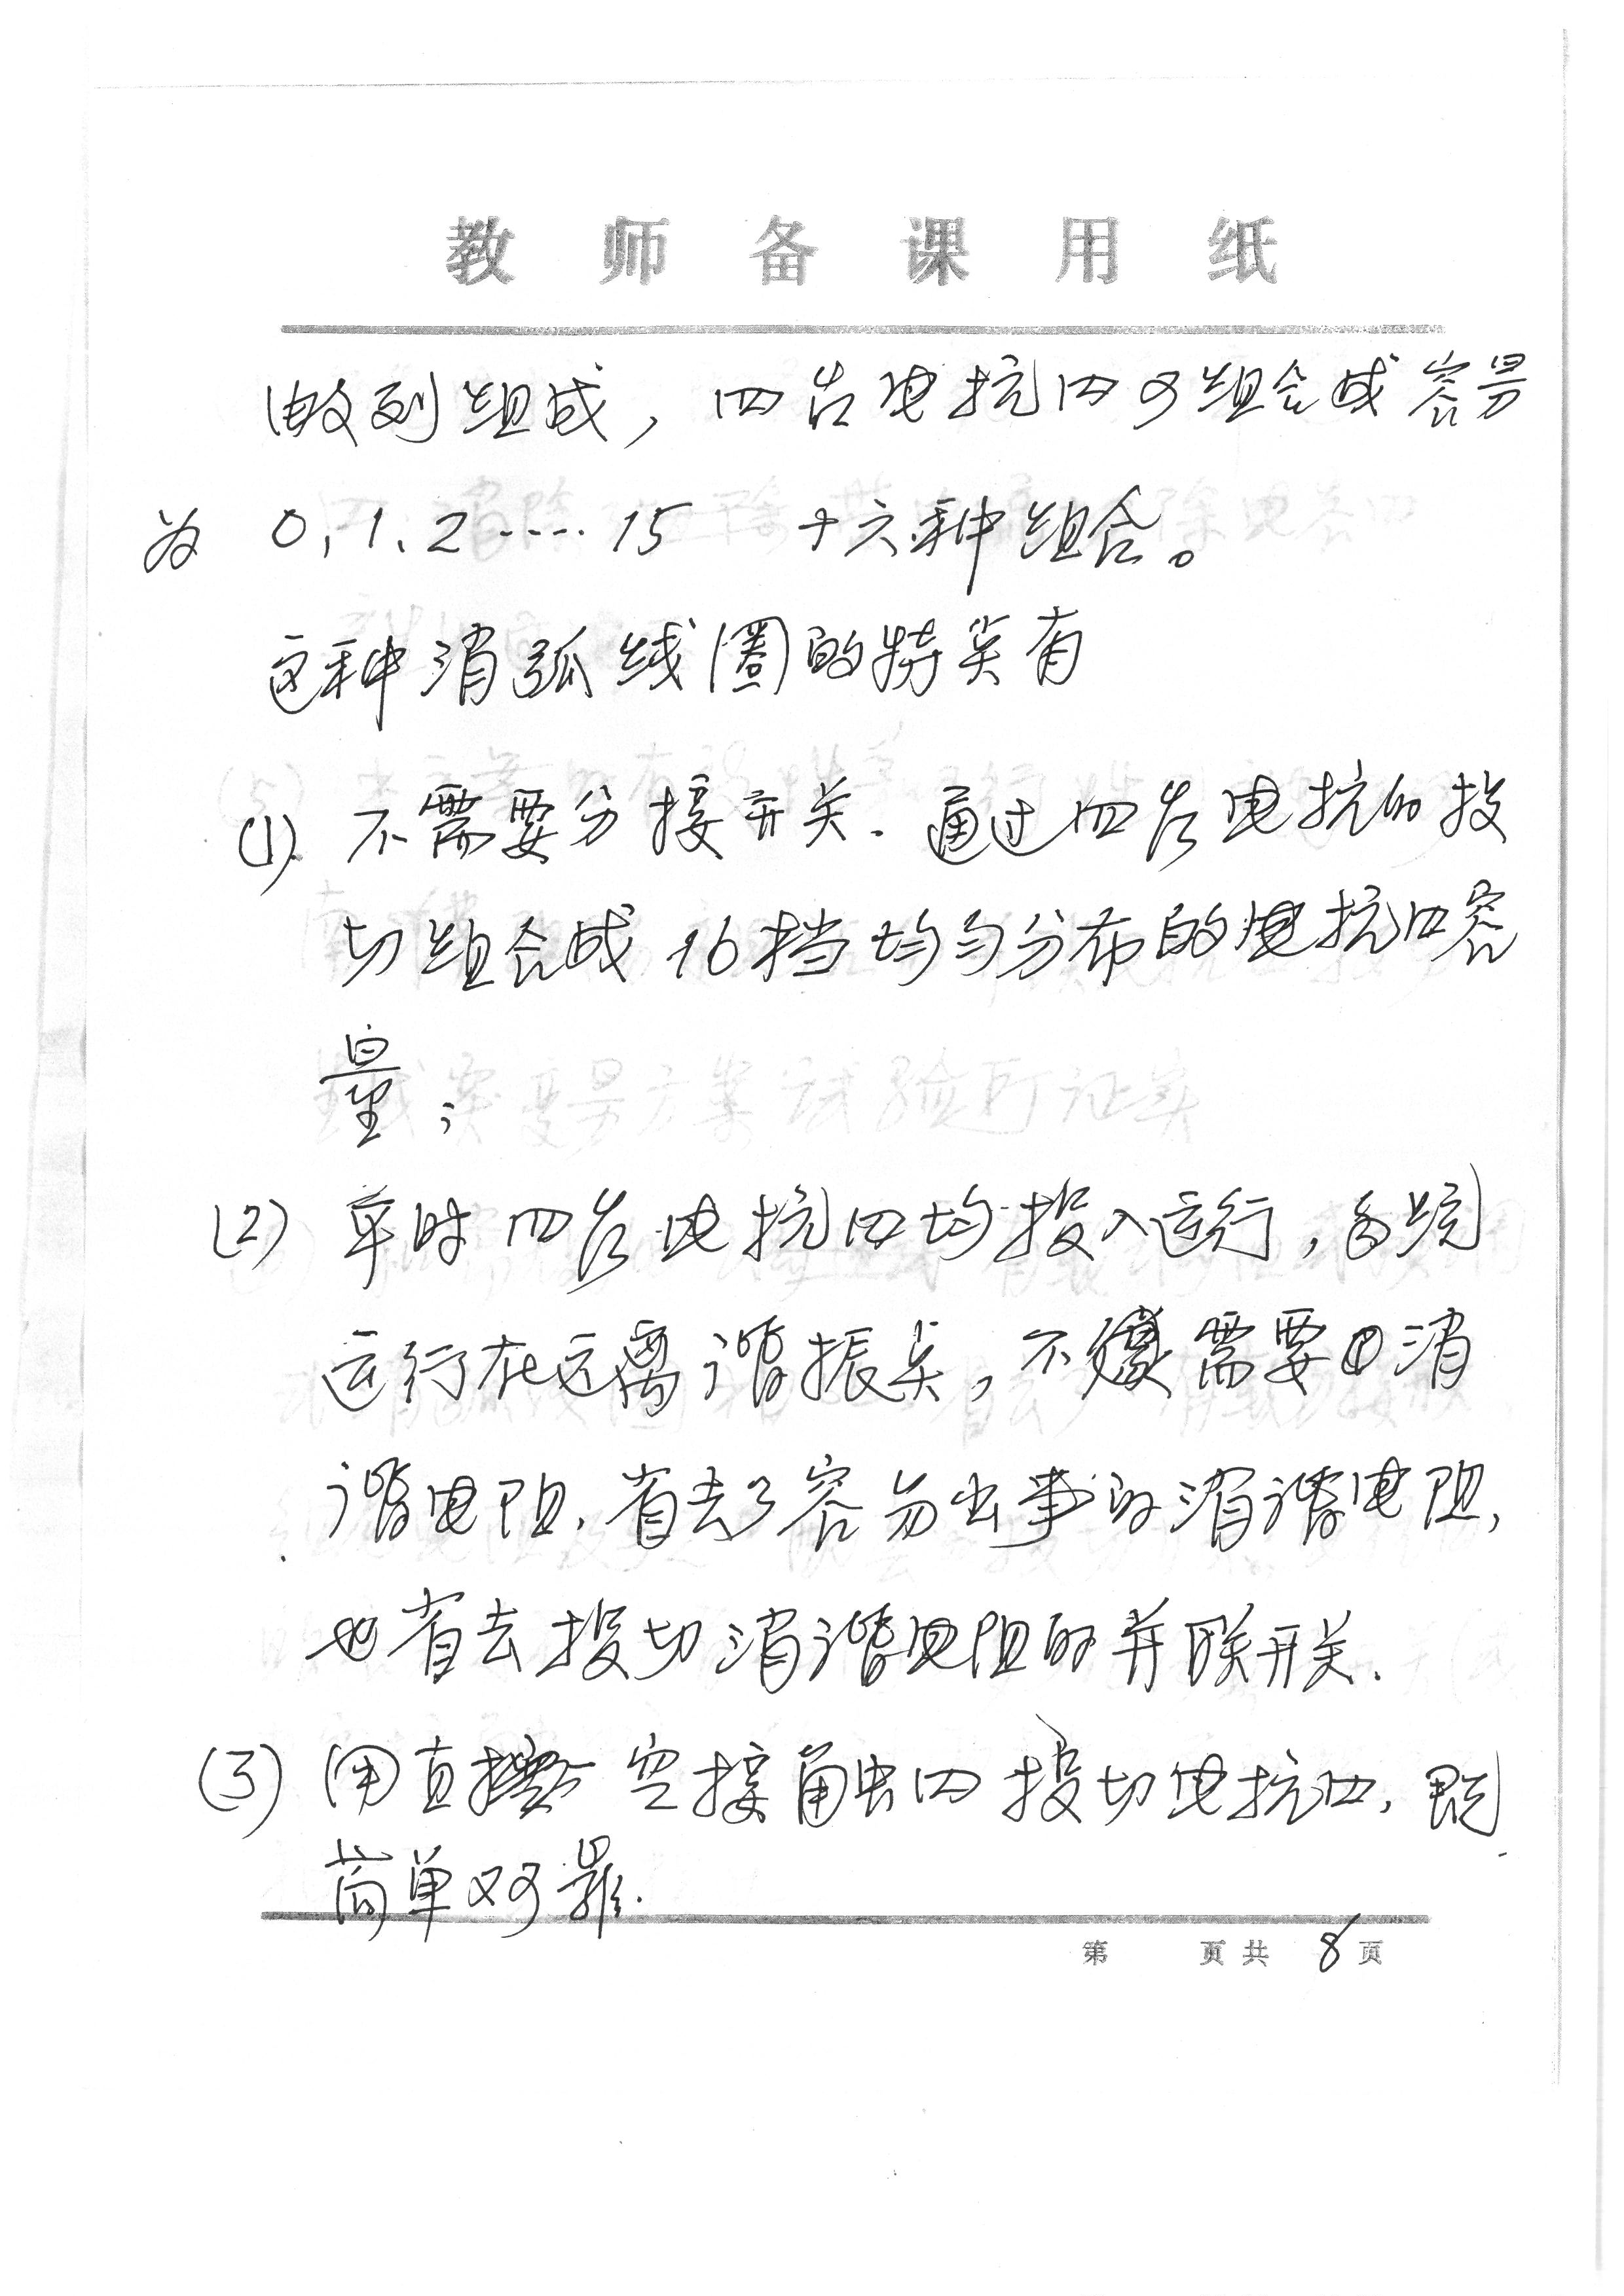 教师备课用纸
做列组成，四台电抗四可组合成容易
为 0,1、2····15 十六种组合。
这种消弧线圈的特点有
(1) 不需要分接开关.通过四台电抗的投
切组合成16挡均匀分布的电抗口容
量；
(2) 平时四台电抗四均投入运行,系统
运行在远离谐振点,不需要消
谐电阻,省去了容易出事的消谐电阻,
也省去投切消谐电阻的并联开关.
(3) 用直空接触四投切电抗四,既
简单又可靠.
第 页共 8 页